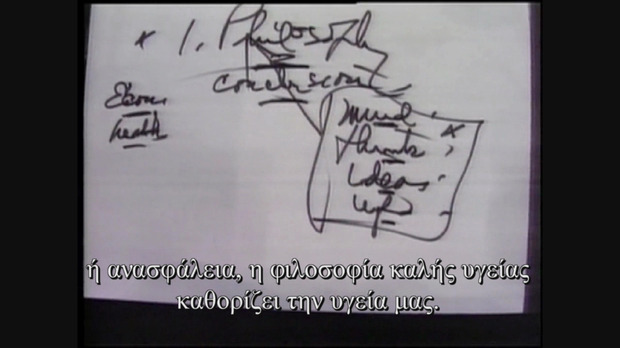 * 1. Philosophy
conclusion
Econ.
health
mind
think
Ideas
ή ανασφάλεια, η φιλοσοφία καλής υγείας
καθορίζει την υγεία μας.